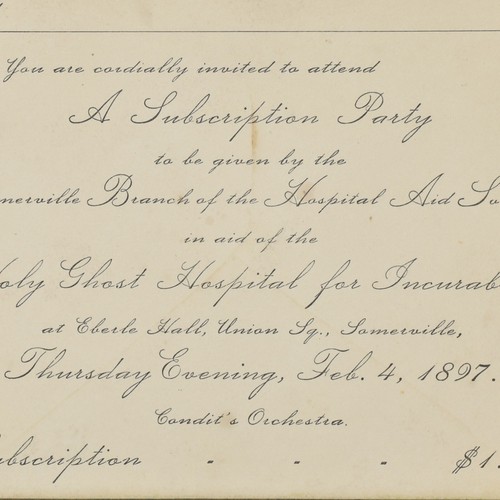 You are cordially invited to attend
A Subscription Party
to be given by the
merville Branch of the Hospital Aid So
in aid of the
Holy Ghost Hospital for Incurab
at Eberle Hall, Union Sq., Somerville,
Thursday Evening, Feb. 4, 1897.
Condit's Orchestra.
ubscription - - - $1.